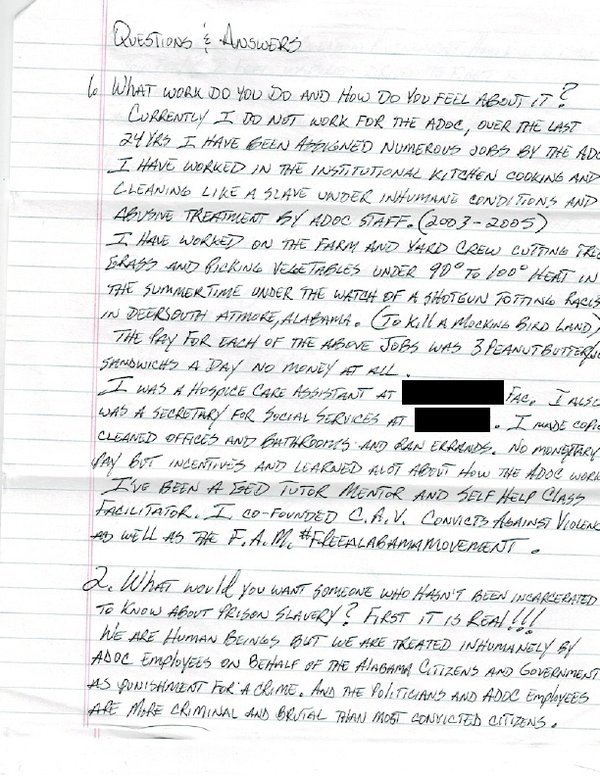 QUESTIONS & ANSWERS
1. WHAT WORK DO YOU DO AND HOW DO YOU FEEL ABOUT IT?
CURRENTLY I DO NOT WORK FOR THE ADOC, OVER THE LAST
24 YRS I HAVE BEEN ASSIGNED NUMEROUS JOBS BY THE ADOC
I HAVE WORKED IN THE INSTITUTIONAL KITCHEN COOKING AND
CLEANING LIKE A SLAVE UNDER INHUMANE CONDITIONS AND
ABUSIVE TREATMENT BY ADOC STAFF. (2003-2005)
I HAVE WORKED ON THE FARM AND YARD CREW CUTTING TREE
GRASS AND PICKING VEGETABLES UNDER 90° TO 100° HEAT IN
THE SUMMERTIME UNDER THE WATCH OF A SHOTGUN TOTTING RACIS
IN DEERSOUTH ATMORE, ALABAMA. (TO KILL A MOCKING BIRD LAND)
THE PAY FOR EACH OF THE ABOVE JOBS WAS 3 PEANUTBUTTER
SANDWICHS A DAY NO MONEY AT ALL.
I WAS A HOSPICE CARE ASSISTANT AT FAC. I ALSO
WAS A SECRETARY FOR SOCIAL SERVICES AT . I MADE COPI
CLEANED OFFICES AND BATHROOMS AND RAN ERRANDS. NO MONETARY
PAY BUT INCENTIVES AND LEARNED ALOT ABOUT HOW THE ADOC WORK
I'VE BEEN A GED TUTOR MENTOR AND SELF HELP CLASS
FACILITATOR. I CO-FOUNDED C.A.V. CONVICTS AGAINST VIOLENC
AS WELL AS THE F.A.M. #FREEALABAMAMOVEMENT.
2. WHAT WOULD YOU WANT SOMEONE WHO HASN'T BEEN INCARCERATED
TO KNOW ABOUT PRISON SLAVERY? FIRST IT IS REAL!!!
WE ARE HUMAN BEINGS BUT WE ARE TREATED INHUMANELY BY
ADOC EMPLOYEES ON BEHALF OF THE ALABAMA CITIZENS AND GOVERNMENT
AS PUNISHMENT FOR A CRIME. AND THE POLITICIANS AND ADOC EMPLOYEES
ARE MORE CRIMINAL AND BRUTAL THAN MOST CONVICTED CITIZENS.